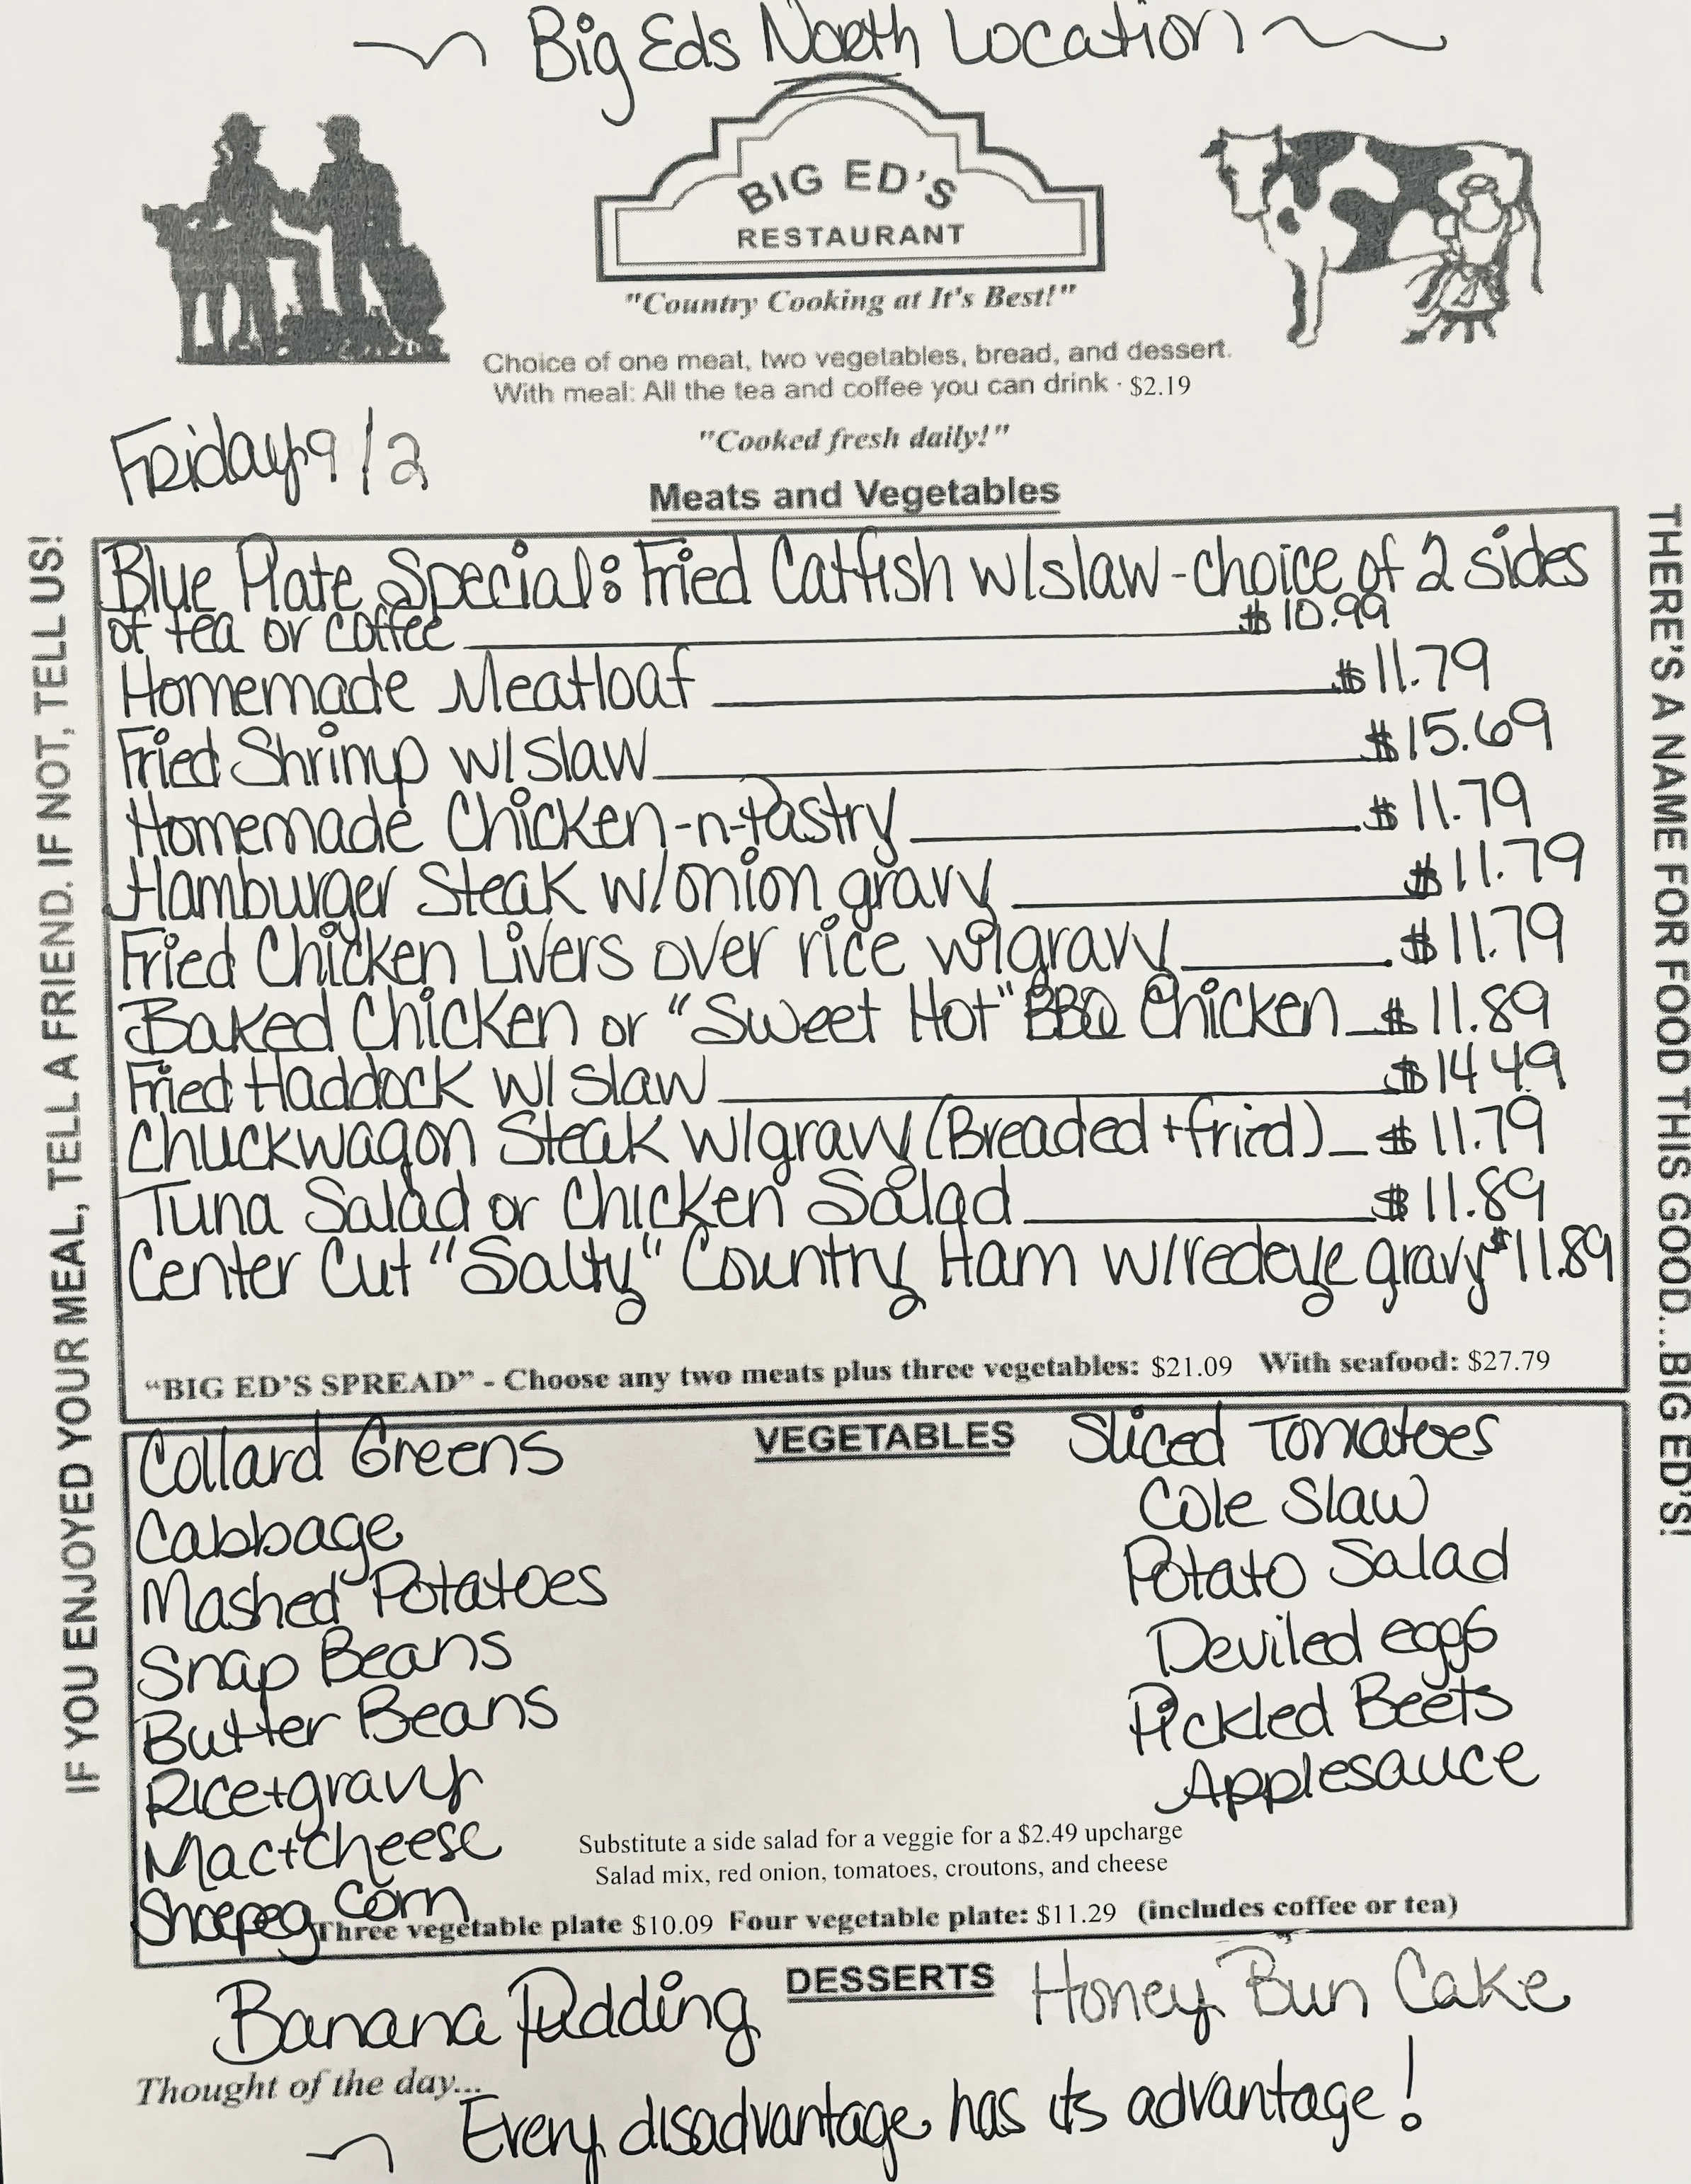 ~ Big Eds North Location ~
BIG ED'S
RESTAURANT
"Country Cooking at It's Best!"
Choice of one meat, two vegetables, bread, and dessert.
With meal: All the tea and coffee you can drink · $2.19
"Cooked fresh daily!"
Friday 9/2
Meats and Vegetables
Blue Plate Special: Fried Catfish w/slaw - choice of 2 sides
of tea or coffee $10.99
Homemade Meatloaf $11.79
Fried Shrimp w/slaw $15.69
Homemade Chicken-n-Pastry $11.79
Hamburger Steak w/onion gravy $11.79
Fried Chicken Livers over rice w/gravy $11.79
Baked Chicken or "Sweet Hot" BBQ Chicken $11.89
Fried Haddock w/slaw $14.49
Chuckwagon Steak w/gravy (Breaded + fried) $11.79
Tuna Salad or Chicken Salad $11.89
Center Cut "Salty" Country Ham w/redeye gravy $11.89
"BIG ED'S SPREAD" - Choose any two meats plus three vegetables: $21.09 With seafood: $27.79
VEGETABLES
Collard Greens
Cabbage
Mashed Potatoes
Snap Beans
Butter Beans
Rice+gravy
Mac+cheese
Shoepeg Corn
Sliced Tomatoes
Cole Slaw
Potato Salad
Deviled eggs
Pickled Beets
Applesauce
Substitute a side salad for a veggie for a $2.49 upcharge
Salad mix, red onion, tomatoes, croutons, and cheese
Three vegetable plate $10.09 Four vegetable plate: $11.29 (includes coffee or tea)
DESSERTS
Banana Pudding
Honey Bun Cake
Thought of the day...
~ Every disadvantage has its advantage!
IF YOU ENJOYED YOUR MEAL, TELL A FRIEND. IF NOT, TELL US!
THERE'S A NAME FOR FOOD THIS GOOD...BIG ED'S!